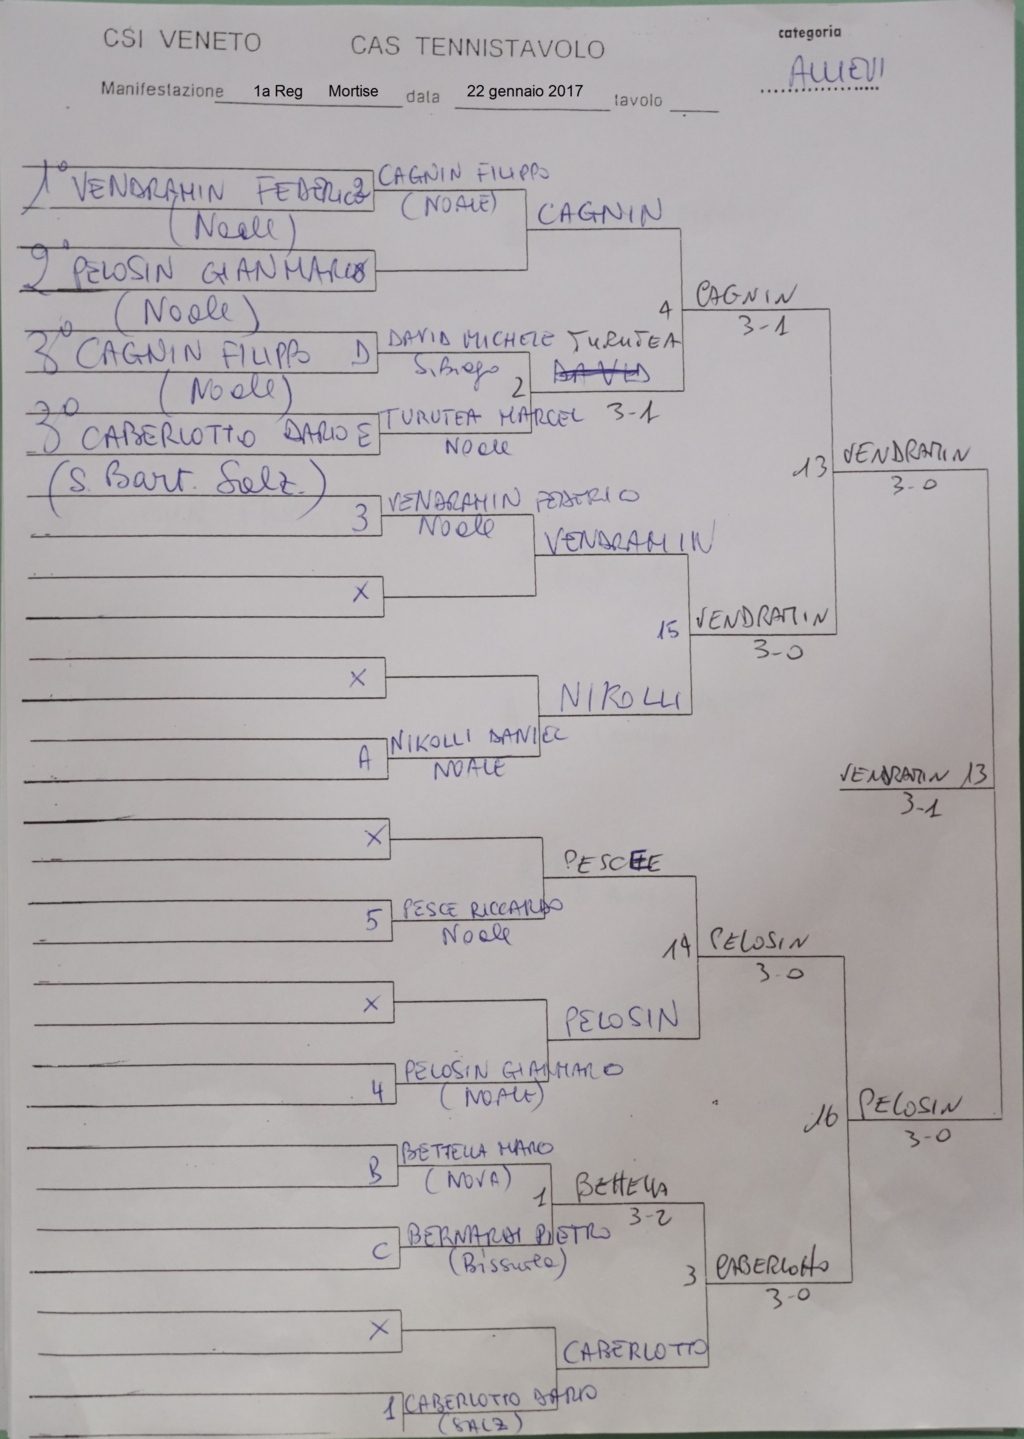 CSI VENETO CAS TENNISTAVOLO
categoria
ALLIEVI
Manifestazione 1a Reg Mortise data 22 gennaio 2017 tavolo
1° VENDRAMIN FEDERICO 2
(Noale)
2° PELOSIN GIANMARCO
(Noale)
3° CAGNIN FILIPPO D
(Noale)
3° CABERLOTTO DARIO E
(S. Bart. Salz.)
CAGNIN FILIPPO
(NOALE)
CAGNIN
DAVID MICHELE
2
TURUTEA
DAVID
3-1
TURUTEA MARCEL
Noale
4
CAGNIN
3-1
3
VENDRAMIN FEDERICO
Noale
VENDRAMIN
X
15
VENDRAMIN
3-0
X
NIKOLLI
A
NIKOLLI DANIEL
NOALE
13
VENDRAMIN
3-0
VENDRAMIN 13
3-1
X
PESCE
5
PESCE RICCARDO
Noale
14
PELOSIN
3-0
X
PELOSIN
4
PELOSIN GIANMARCO
(NOALE)
16
PELOSIN
3-0
B
BETTELLA MARCO
(NOVA)
1
BETTELLA
3-2
C
BERNARDI PIETRO
3
CABERLOTTO
3-0
X
CABERLOTTO
1
CABERLOTTO DARIO
(SALZ)